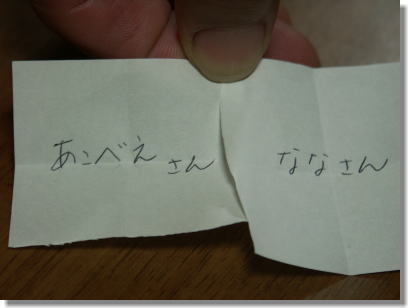 あこべえさん
ななさん